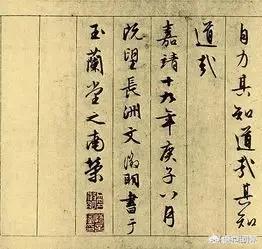 自力其知道哉其知
道哉
嘉靖十九年庚子八月
既望長洲文徵明書于
玉蘭堂之南榮